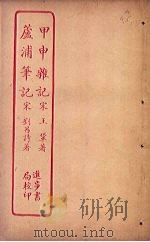 甲申雜記宋王鞏著
蘆浦筆記宋劉昌詩著
進步書
局校印